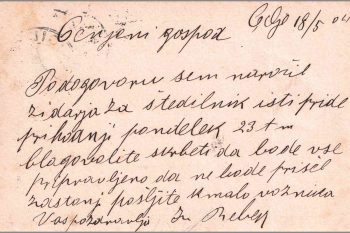 Cenjeni gospod
Gdje 18/5 04
Po dogovoru sem naročil
zidarja za štedilnik isti pride
prihodnji pondelek 23 t m
blagovolite skrbeti da bode vse
pripravljeno da ne bode prišel
zastonj pošljite k malo voznica
Vas pozdravlja Iv Rebek